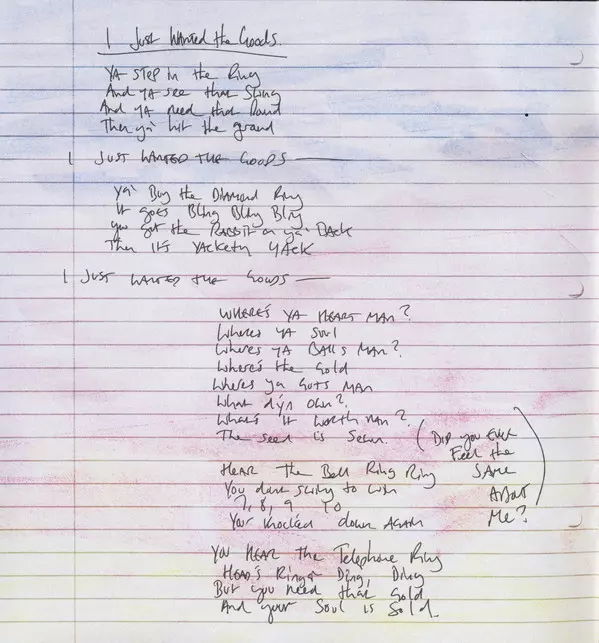 I Just Wanted the Goods.
Ya step in the Ring
And ya see that Sting
And ya need that Round
Then ya' hit the ground
I JUST WANTED THE GOODS
Ya' Buy the Diamond Ring
It goes Bling Bling Bling
You got the RABBIT on ya' BACK
Then it's YACKETY YACK
I JUST WANTED THE GOODS
WHERE'S YA HEART MAN?
Where's YA Soul
Where's YA BALLS MAN?
Where's the Gold
Where's ya GUTS MAN
What d'ya own?
What's it worth man?
The seed is Sewn.
(DID YOU EVER
Feel the
SAME
ABOUT
Me?)
HEAR the Bell Ring Ring
You to
7, 8, 9 10
Your knocked down AGAIN
YOU HEAR the Telephone Ring
HEAD'S Ring Ding, Ding
But you need that Gold
And your Soul is Sold